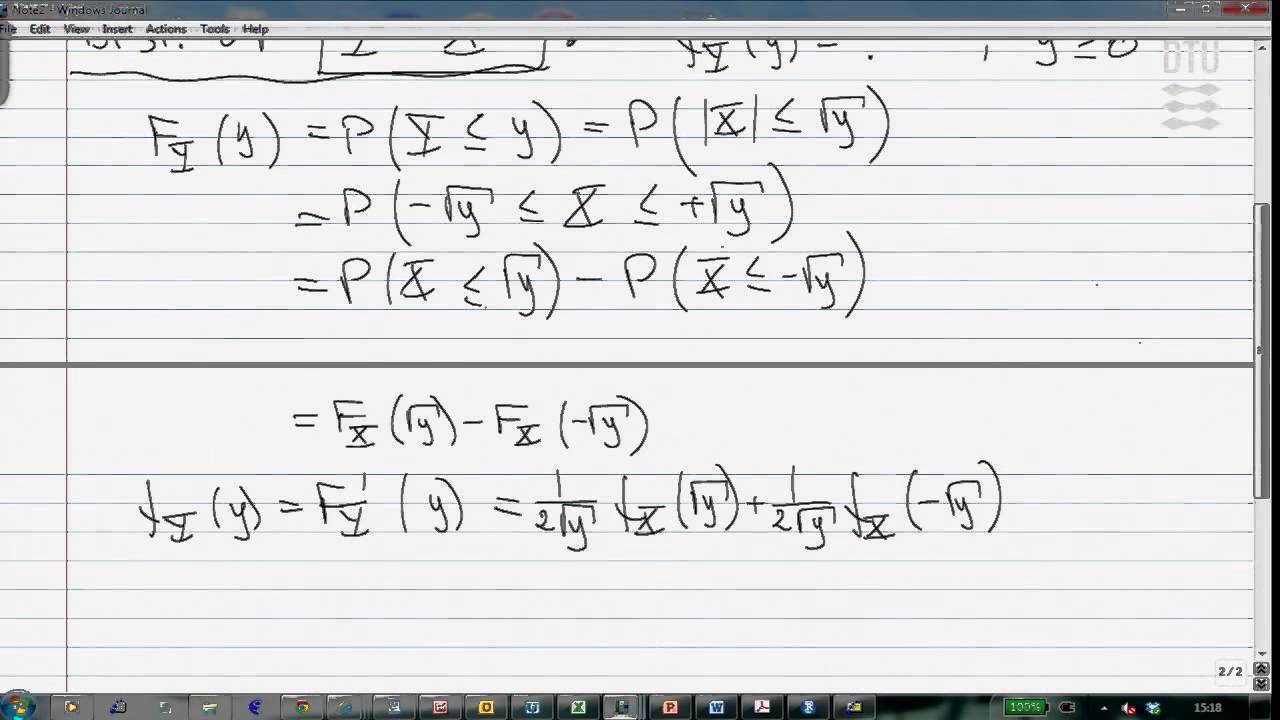 Note2 - Windows Journal
File Edit View Insert Actions Tools Help
f_Y(y) = ? , y ≥ 0
DTU
F_Y(y) = P(Y ≤ y) = P(|X| ≤ √y)
= P(-√y ≤ X ≤ +√y)
= P(X ≤ √y) - P(X ≤ -√y)
= F_X(√y) - F_X(-√y)
f_Y(y) = F'_Y(y) = 1/(2√y) f_X(√y) + 1/(2√y) f_X(-√y)
2/2
100% 15:18